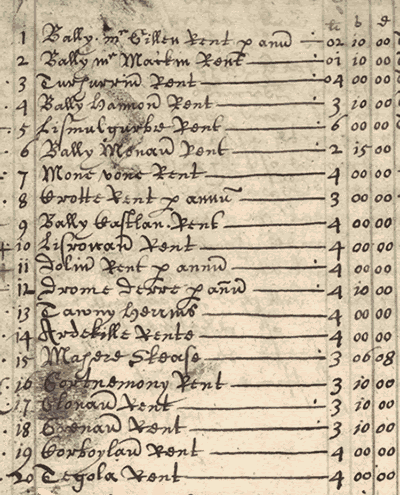 li s d
1 Bally mc Gillen Rent p anū 02 10 00
2 Bally mc Martin Rent 01 10 00
3 Turfurrin Rent 04 00 00
4 Bally Hamon Rent 3 10 00
5 Lismulgurbre Rent 6 00 00
6 Bally Monan Rent 2 15 00
7 Mone vone Rent 4 00 00
8 Crotte Rent p annū 3 00 00
9 Bally Castlan Rent 4 00 00
10 Lisrowan Rent 4 00 00
11 Rent p annū 4 00 00
12 Drome derre p anū 4 10 00
13 Tawny Herrins 4 00 00
14 Ardekille Rente 4 00 00
15 Mahere Slease 3 06 08
16 Gortnemony Rent 3 10 00
17 Clonan Rent 3 10 00
18 Crenan Rent 3 10 00
19 Corboylan Rent 4 00 00
20 Tegola Rent 4 00 00